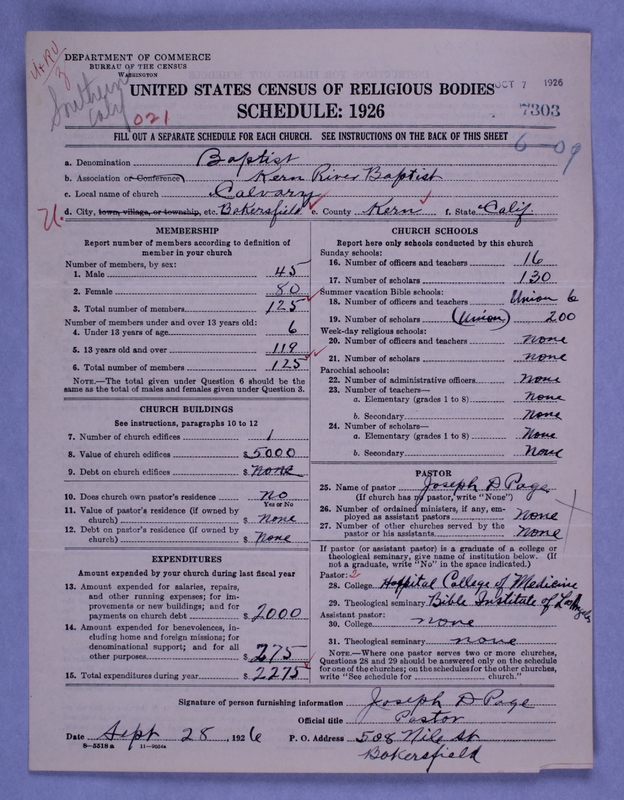 DEPARTMENT OF COMMERCE
BUREAU OF THE CENSUS
WASHINGTON
Southern
Calif
021
UNITED STATES CENSUS OF RELIGIOUS BODIES
OCT 7 1926
SCHEDULE: 1926
7303
FILL OUT A SEPARATE SCHEDULE FOR EACH CHURCH. SEE INSTRUCTIONS ON THE BACK OF THIS SHEET
6-09
a. Denomination Baptist
b. Association or Conference) Kern River Baptist
c. Local name of church Calvary
d. City, town, village, or township, etc. Bakersfield e. County Kern f. State Calif
MEMBERSHIP
Report number of members according to definition of
member in your church
Number of members, by sex:
1. Male 45
2. Female 80
3. Total number of members 125
Number of members under and over 13 years old:
4. Under 13 years of age 6
5. 13 years old and over 119
6. Total number of members 125
NOTE.—The total given under Question 6 should be the
same as the total of males and females given under Question 3.
CHURCH BUILDINGS
See instructions, paragraphs 10 to 12
7. Number of church edifices 1
8. Value of church edifices $5000
9. Debt on church edifices $ None
10. Does church own pastor's residence no
Yes or No
11. Value of pastor's residence (if owned by
church) $ None
12. Debt on pastor's residence (if owned by
church) $ None
EXPENDITURES
Amount expended by your church during last fiscal year
13. Amount expended for salaries, repairs,
and other running expenses; for im-
provements or new buildings; and for
payments on church debt $2000
14. Amount expended for benevolences, in-
cluding home and foreign missions; for
denominational support; and for all
other purposes $ 275
15. Total expenditures during year $2275
CHURCH SCHOOLS
Report here only schools conducted by this church
Sunday schools:
16. Number of officers and teachers 16
17. Number of scholars 130
Summer vacation Bible schools:
18. Number of officers and teachers Union 6
19. Number of scholars (Union) 200
Week-day religious schools:
20. Number of officers and teachers none
21. Number of scholars none
Parochial schools:
22. Number of administrative officers None
23. Number of teachers—
a. Elementary (grades 1 to 8) None
b. Secondary None
24. Number of scholars—
a. Elementary (grades 1 to 8) None
b. Secondary None
PASTOR
25. Name of pastor Joseph D Page
(If church has no pastor, write "None")
26. Number of ordained ministers, if any, em-
ployed as assistant pastors None
27. Number of other churches served by the
pastor or his assistants None
If pastor (or assistant pastor) is a graduate of a college or
theological seminary, give name of institution below. (If
not a graduate, write "No" in the space indicated.)
Pastor: 2
28. College Hospital College of Medicine
29. Theological seminary Bible Institute of Los Angeles
Assistant pastor:
30. College none
31. Theological seminary none
NOTE.—Where one pastor serves two or more churches,
Questions 28 and 29 should be answered only on the schedule
for one of the churches; on the schedules for the other churches,
write "See schedule for church."
Signature of person furnishing information Joseph D Page
Official title Pastor
Date Sept 28, 1926 P. O. Address 508 Nile St
8-5518a 11-9054a Bakersfield